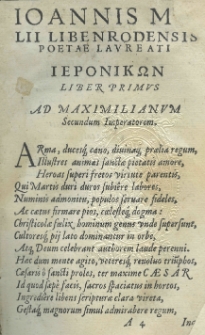 IOANNIS M
LII LIBENRODENSIS
POETAE LAVREATI
ΙΕΡΟΝΙΚΩΝ
LIBER PRIMVS
AD MAXIMILIANVM
Secundum Imperatorem.
ARma, ducesq́ cano, diuinaq́ prælia regum,
Illustres animas sanctæ pietatis amore,
Heroas superi fretos virtute parentis,
Qui Martis duri duros subiêre labores,
Numinis admonitu, populos seruare fideles,
Ac cœtus firmare pios, cœlestéq́ dogma:
Christicolæ fœlix hominum genus vnde supersunt,
Cultoresq́ pij lato dominantur in orbe,
Atq́ Deum celebrant authorem laude perenni.
Hæc dum mente agito, veteresq́ reuoluo triumphos,
Cæsaris ô sancti proles, ter maxime CÆSAR
Id quod sæpe facis, sacros spaciatus in hortos,
Ingredière libens scripturæ clara vireta,
Gestaq́ magnorum simul admirabere regum,
A 4 Inc